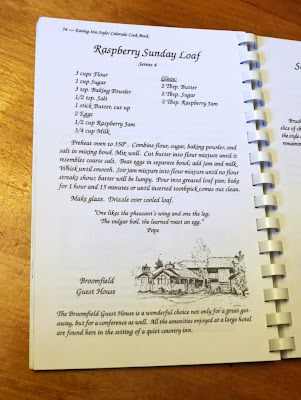 54 — Eating Inn Style: Colorado Cook Book
Raspberry Sunday Loaf
Serves 4
3 cups Flour
1 cup Sugar
3 tsp. Baking Powder
1/2 tsp. Salt
1 stick Butter, cut up
2 Eggs
1/2 cup Raspberry Jam
3/4 cup Milk
Glaze:
2 Tbsp. Butter
2 Tbsp. Sugar
2 Tbsp. Raspberry Jam
Preheat oven to 350°. Combine flour, sugar, baking powder, and
salt in mixing bowl. Mix well. Cut butter into flour mixture until it
resembles coarse salt. Beat eggs in separate bowl; add jam and milk.
Whisk until smooth. Stir jam mixture into flour mixture until no flour
streaks show; batter will be lumpy. Pour into greased loaf pan; bake
for 1 hour and 15 minutes or until inserted toothpick comes out clean.
Make glaze. Drizzle over cooled loaf.
One likes the pheasant's wing and one the leg;
The vulgar boil, the learned roast an egg.
Pope
Broomfield
Guest House
The Broomfield Guest House is a wonderful choice not only for a great get-
away, but for a conference as well. All the amenities enjoyed at a large hotel
are found here in the setting of a quiet country inn.